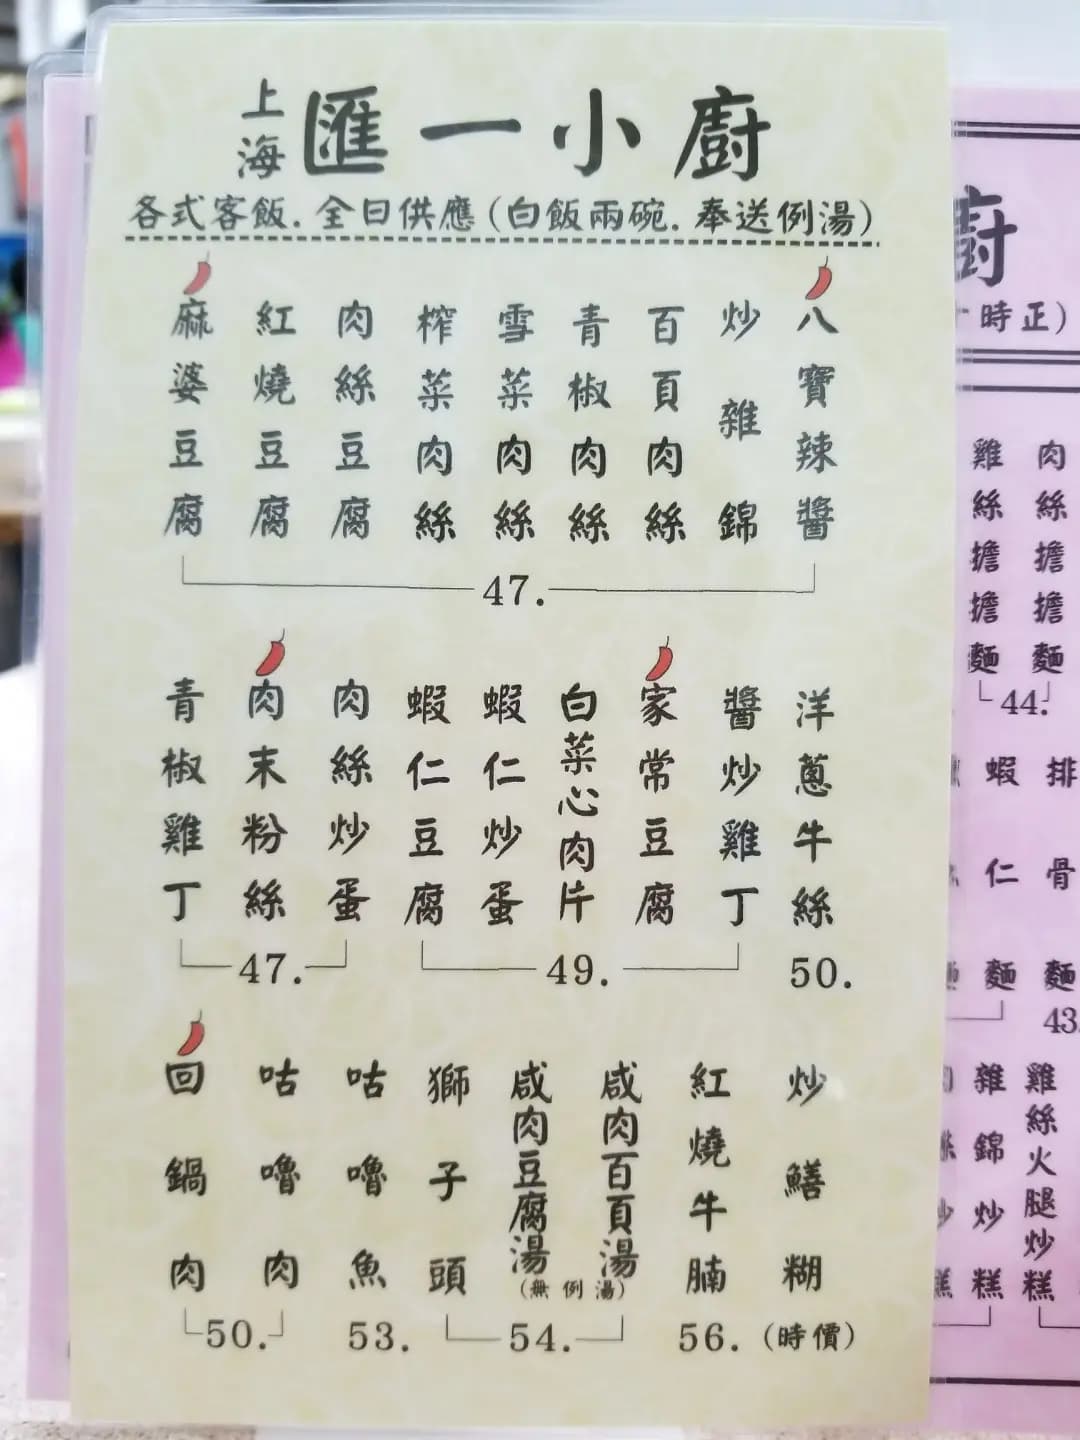 上海 匯一小廚
各式客飯.全日供應(白飯兩碗.奉送例湯)
麻婆豆腐
紅燒豆腐
肉絲豆腐
榨菜肉絲
雪菜肉絲
青椒肉絲
百頁肉絲
炒雜錦
八寶辣醬
47.
青椒雞丁
肉末粉絲
肉絲炒蛋
47.
蝦仁豆腐
蝦仁炒蛋
白菜心肉片
家常豆腐
醬炒雞丁
49.
洋蔥牛絲
50.
回鍋肉
咕嚕肉
50.
咕嚕魚
53.
獅子頭
咸肉豆腐湯
咸肉百頁湯
(無例湯)
54.
紅燒牛腩
56.
炒鱔糊
(時價)
廚
十時正)
雞絲擔擔麵
肉絲擔擔麵
44.
蝦仁麵
排骨麵
43.
雜錦炒糕
雞絲火腿炒糕